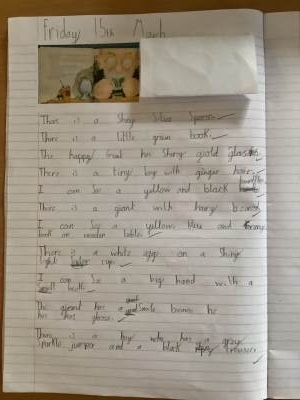 Friday 15th March
There is a Shiny Silver Spoon
There is a little green book
The happy Giant has Shiny gold glasses
There is a tiny boy with ginger hair
I can See a yellow and black
There is a giant with hairy
I can See a yellow blue and
book on wooden table
There is a white egg on a Shiny
light cup
I can See a big hand with a
The giant has a Smile because he
has his glasses
There is a boy who has a grey
sparkle jumper and a black trousers